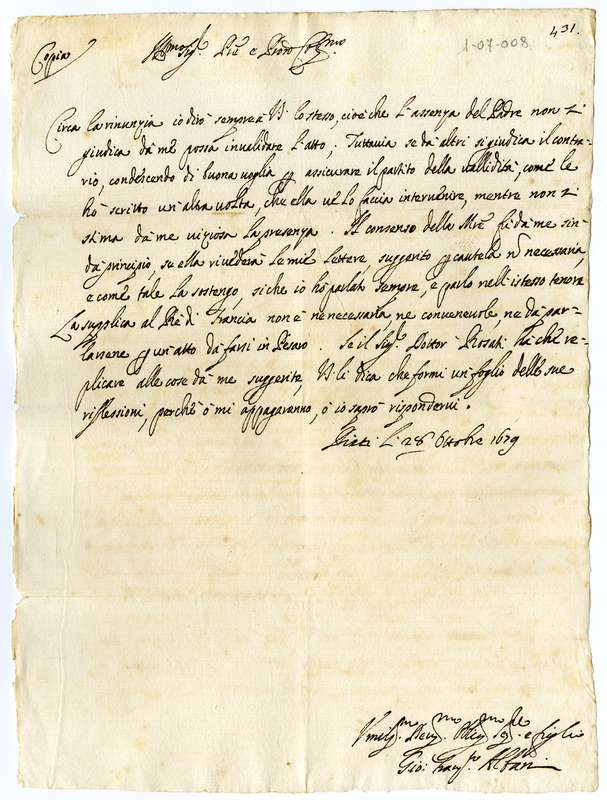 431.
1-07-008.
Copia
Ill.mo Sig.r Pre e Pron Col.mo
Circa la rinunzia io dirò sempre à V.S. lo stesso, cioè che l'assenza del Padre non si
giudica da me possa invalidare l'atto; Tuttavia se da altri si giudica il contra-
rio, condescendo di buona voglia per assicurare il partito della vallidità, come le
hò scritto un'altra volta, che ella ve lo faccia intervenire, mentre non si
stima da me viziosa la presenza. Il consenso della Mre fù da me sin
da principio, se ella rivederà le mie lettere, suggerito per cautela non necessaria,
e come tale la sostengo, siche io hò parlato sempre, e parlo nell'istesso tenore
La supplica al Rè di Francia non è ne necessaria, ne convenevole, ne da par-
larsene per un atto da farsi in Pesaro. Se il Sig.r Dottor Rosati hà che re-
plicare alle cose da me suggerite, V.S. li dica che formi un foglio delle sue
riflessioni, perche ò mi appagaranno, ò io saprò rispondervi.
li 28 Ottobre 1679
Umilis.mo Devo.mo Oblig.mo e figlio
Gio: Franc.o Albani